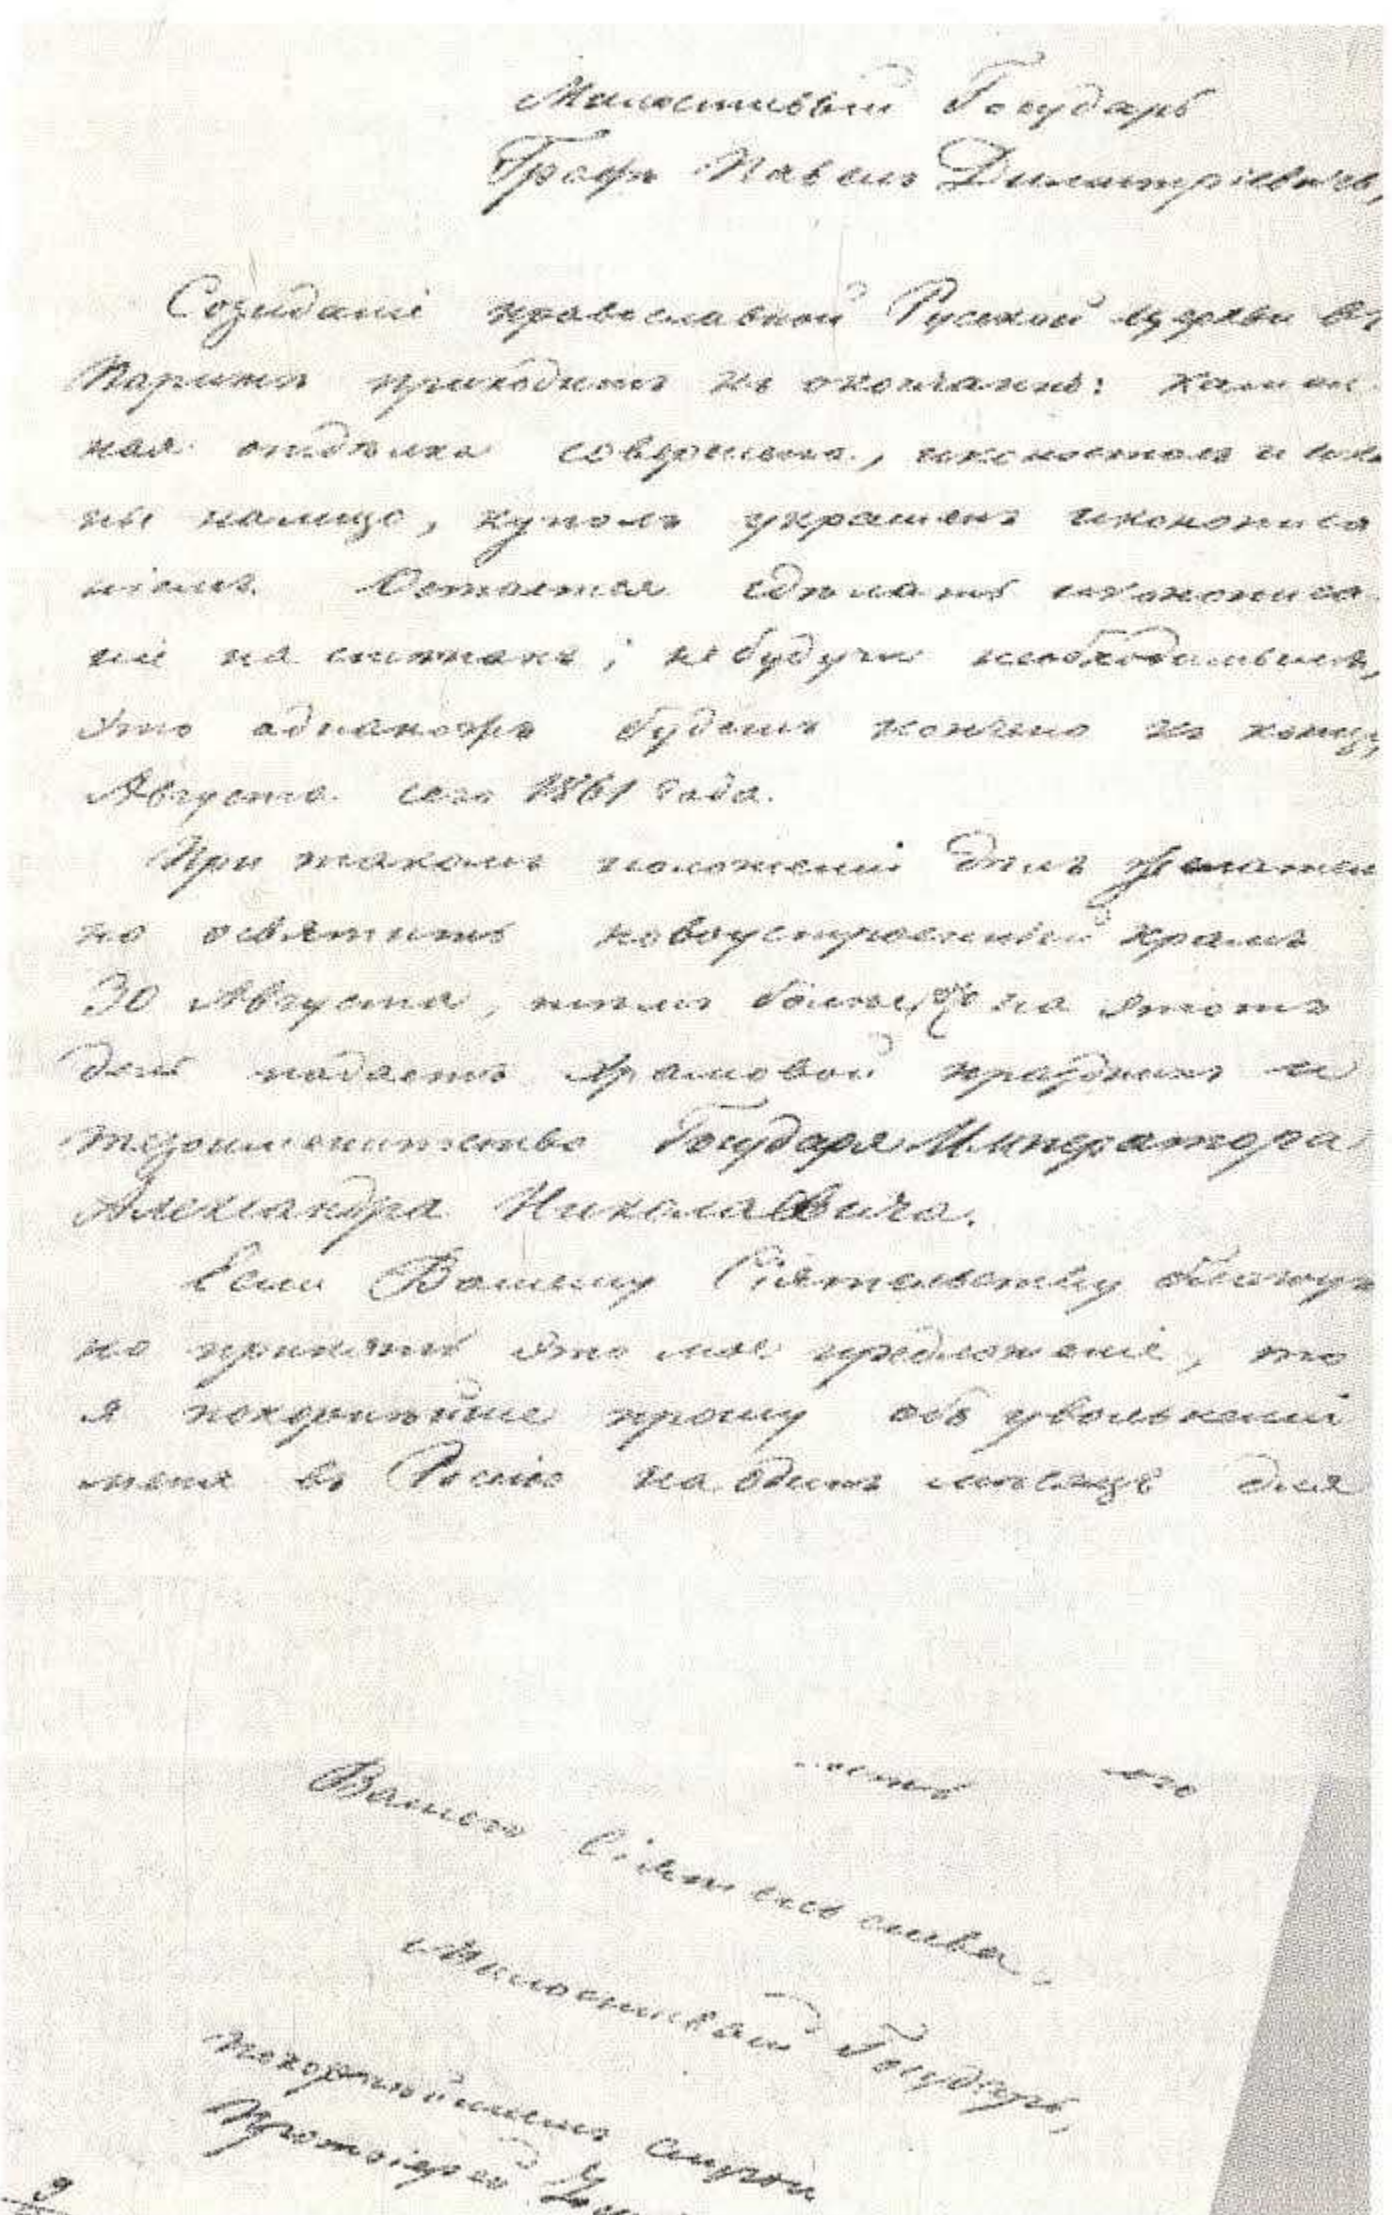 Милостивый Государь
Графъ Павелъ Димитріевичъ,
Созиданіе православной Русской церкви въ
Парижѣ приходитъ къ окончанію: камен-
ная отдѣлка совершена, иконостасъ и ико
ны налицо, куполъ украшенъ иконописа
ніемъ. Остается сдѣлать иконописа
ніе на стѣнахъ; не будучи необходимымъ,
это однакожъ будетъ кончено къ концу
Августа сего 1861 года.
При такомъ положеніи дѣлъ желатель
но освятить новоустроенный храмъ
30 Августа, тѣмъ болѣе, что на этотъ
день падаетъ храмовой праздникъ и
тезоименитство Государя Императора
Александра Николаевича.
Если Вашему Сіятельству благоугод
но принять это мое предложеніе, то
я покорнѣйше прошу объ увольненіи
меня въ Россію на одинъ мѣсяцъ для
Вашего Сіятельства,
Милостивый Государь,
покорнѣйшимъ слугой
Протоіерей